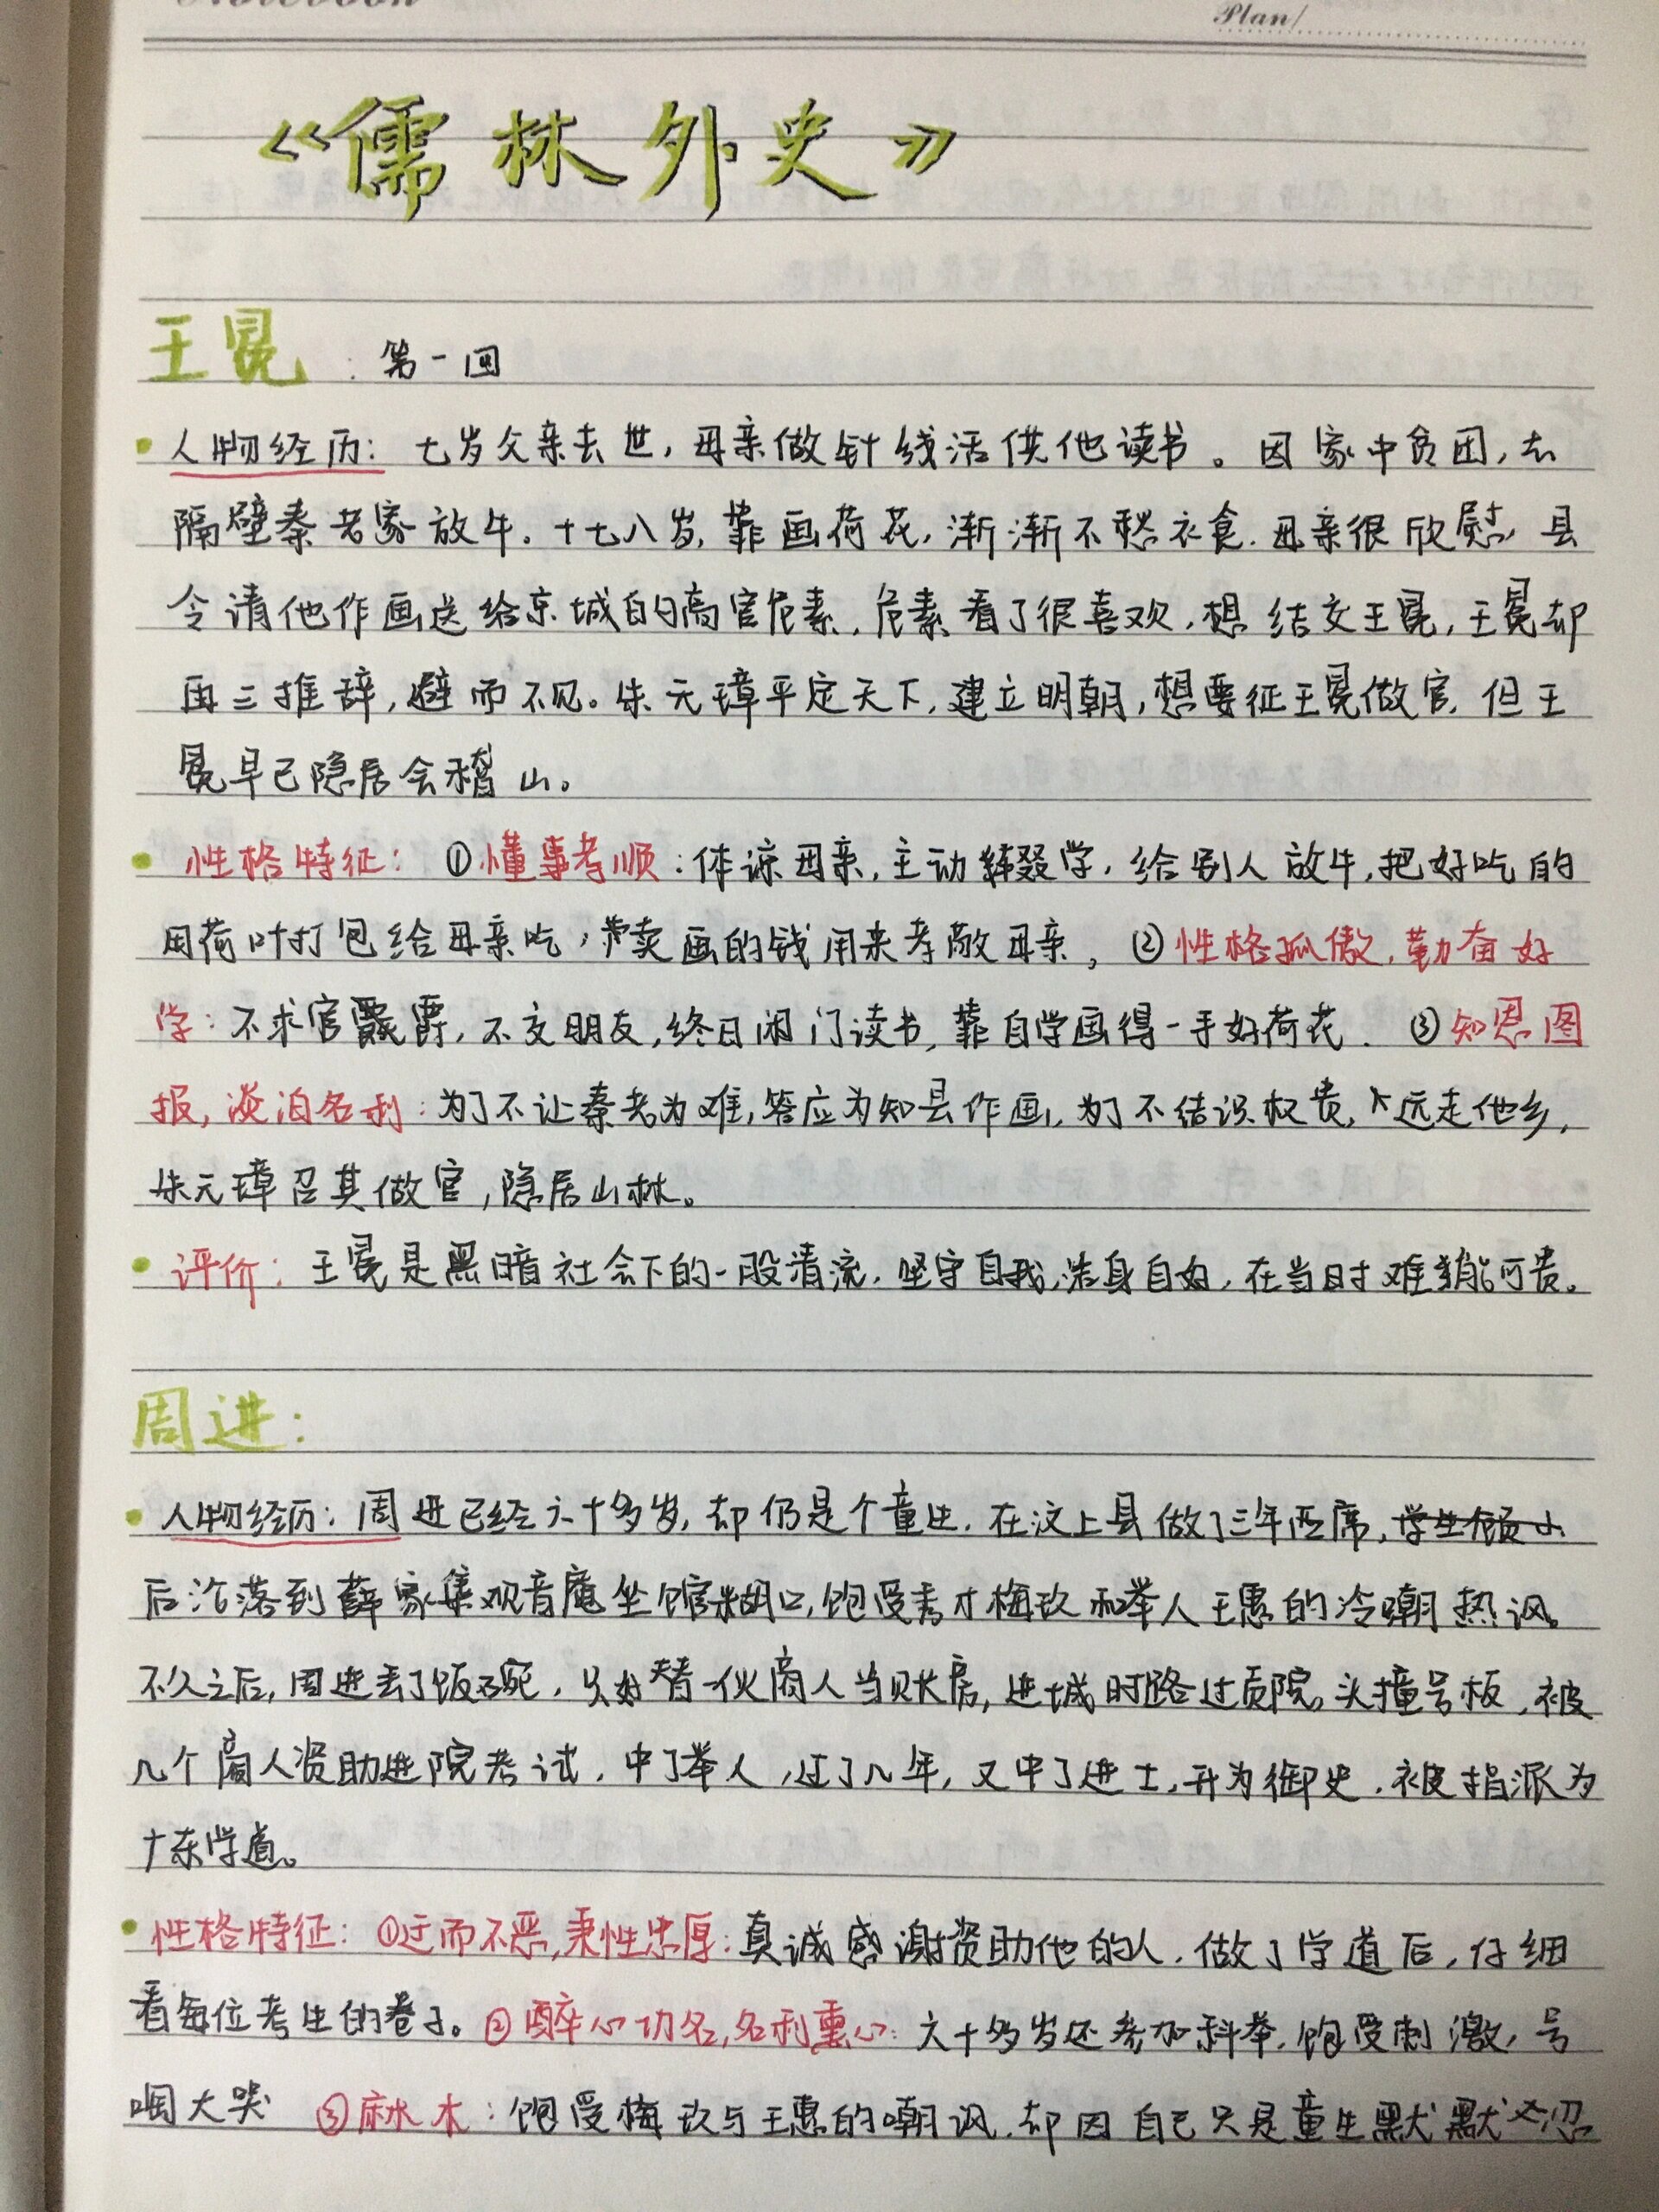 Notebook
Plan/
《儒林外史》
王冕：第一回
人物经历：七岁父亲去世，母亲做针线活供他读书。因家中贫困，去
隔壁秦老家放牛。十七八岁，靠画荷花，渐渐不愁衣食。母亲很欣慰，县
令请他作画送给京城的高官危素，危素看了很喜欢，想结交王冕，王冕却
再三推辞，避而不见。朱元璋平定天下，建立明朝，想要征王冕做官，但王
冕早已隐居会稽山。
性格特征：①懂事孝顺：体谅母亲，主动辍学，给别人放牛，把好吃的
用荷叶打包给母亲吃，卖画的钱用来孝敬母亲，②性格孤傲，勤奋好
学：不求官爵，不交朋友，终日闭门读书，靠自学画得一手好荷花。③知恩图
报，淡泊名利：为了不让秦老为难，答应为知县作画，为了不结识权贵，远走他乡，
朱元璋召其做官，隐居山林。
评价：王冕是黑暗社会下的一股清流，坚守自我，洁身自好，在当时难能可贵。
周进：
人物经历：周进已经六十多岁，却仍是个童生，在汶上县做了三年西席，
后沦落到薛家集观音庵坐馆糊口，饱受秀才梅玖和举人王惠的冷嘲热讽。
不久之后，周进丢了饭碗，只好替一伙商人当账房，进城时路过贡院，头撞号板，被
几个商人资助进院考试，中了举人，过了几年，又中了进士，升为御史，被指派为
广东学道。
性格特征：①迂而不恶，秉性忠厚：真诚感谢资助他的人，做了学道后，仔细
看每位考生的卷子。②醉心功名，名利熏心：六十多岁还参加科举，饱受刺激，号
啕大哭 ③麻木：饱受梅玖与王惠的嘲讽，却因自己只是童生默默忍